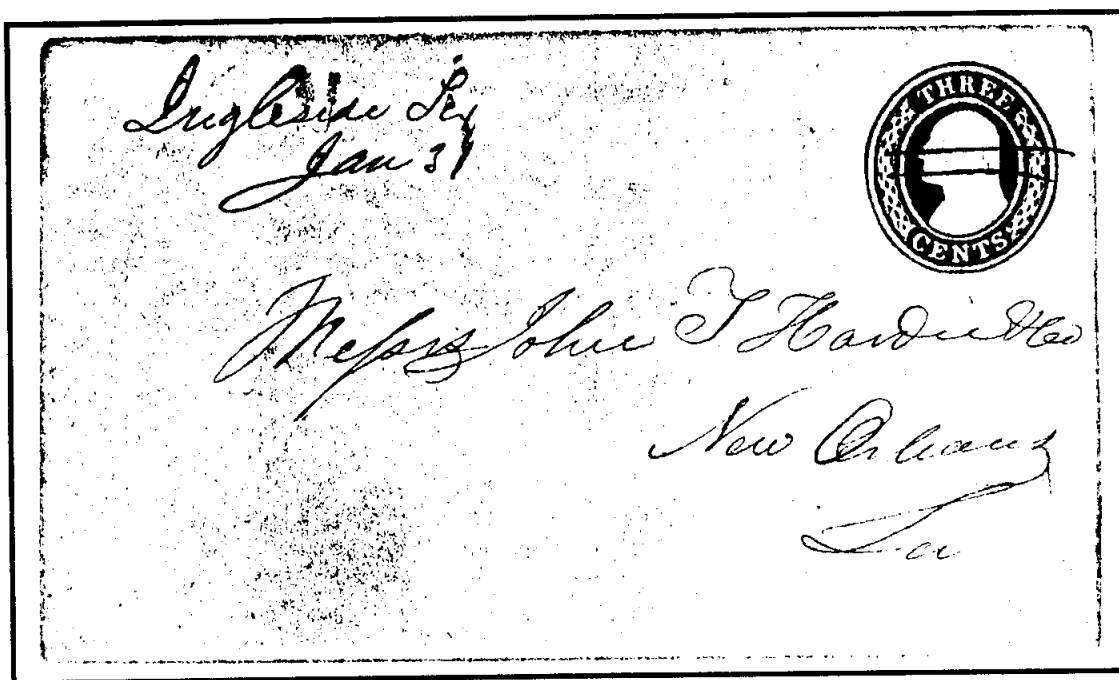 Ingleside Tex
Jan 31
THREE
CENTS
Messrs John T Hardie & Co
New Orleans
La